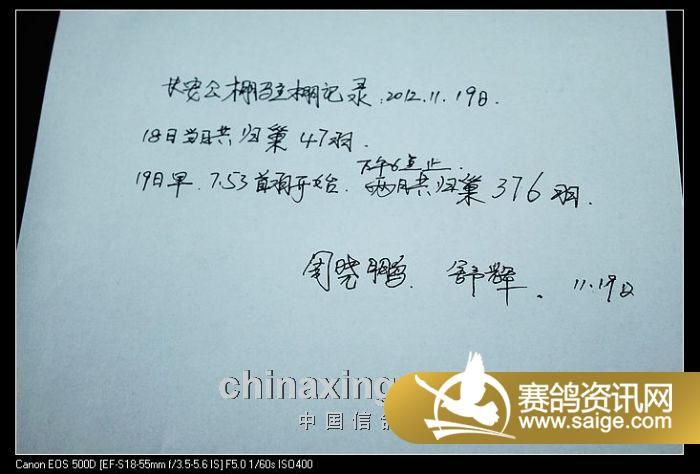 长安公棚驻棚记录.2012.11.19日.
18日当日共归巢47羽.
下午6点止.
19日早.7:53首羽开始.两日共归巢376羽.
周晓鹏. 舒辉. 11.19日
chinaxing
中国信
赛鸽资讯网
www.saige.com
Canon EOS 500D [EF-S18-55mm f/3.5-5.6 IS] F5.0 1/60s ISO400